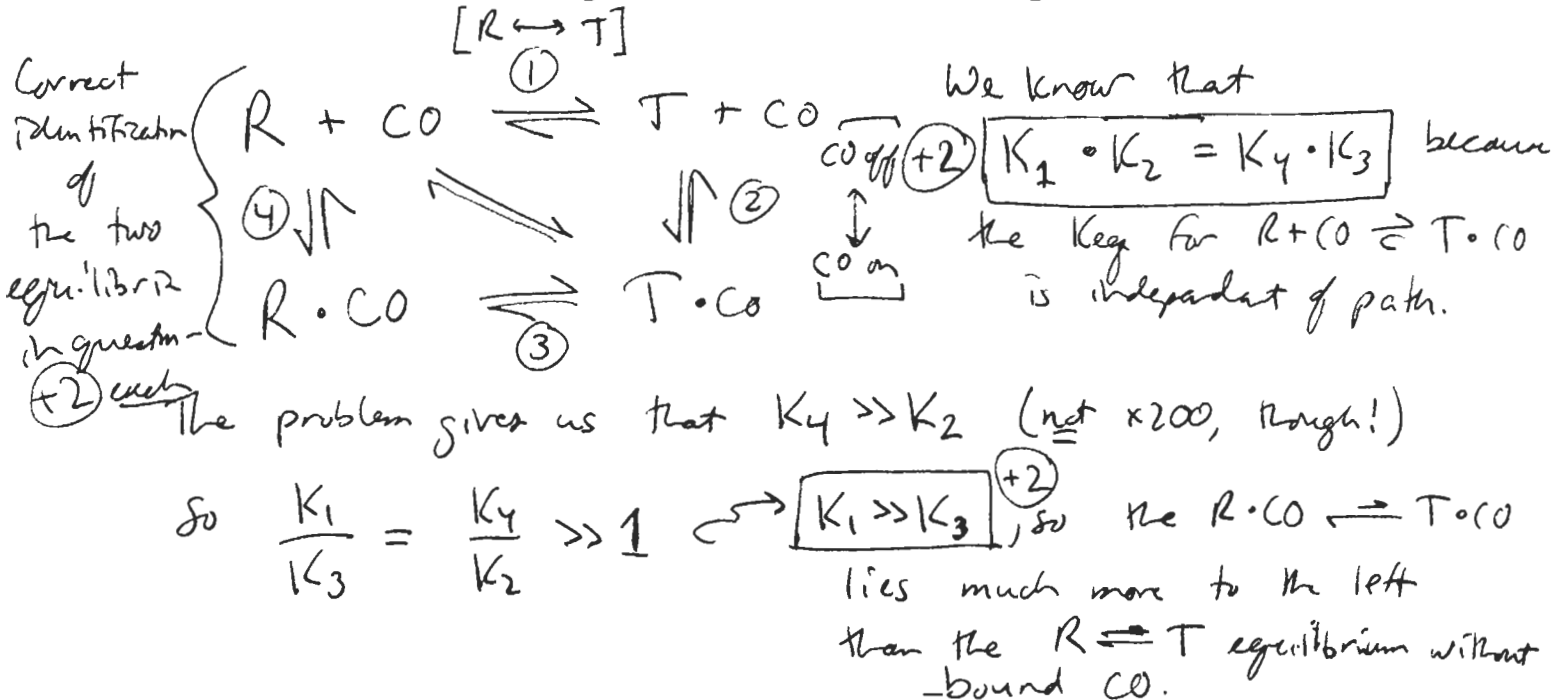 [R ↔ T]
①
Correct
identification
of
the two
equilibria
in question
+2 each
R + CO ⇌ T + CO
④ ⇌ ⇌ ② ⇌
R • CO ⇌ T • CO
③
CO off
↕
CO on
We know that
+2 K₁ • K₂ = K₄ • K₃ because
the Keq for R + CO ⇌ T • CO
is independant of path.
The problem gives us that K₄ >> K₂ (not ×200, though!)
So K₁/K₃ = K₄/K₂ >> 1 → K₁ >> K₃ +2, so the R•CO ⇌ T•CO
lies much more to the left
than the R ⇌ T equilibrium without
-bound CO.